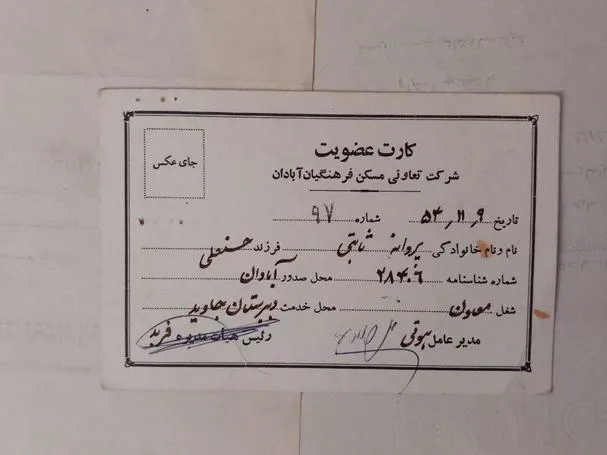 کارت عضویت
شرکت تعاونی مسکن فرهنگیان آبادان
جای عکس
تاریخ ۵۴٫۱۱٫۹ شماره ۹۷
نام و نام خانوادگی پروانه ثابتی فرزند حسنعلی
شماره شناسنامه ۲۸۴۰۶ محل صدور آبادان
شغل معاون محل خدمت دبیرستان جاوید
مدیر عامل رئیس هیأت مدیره فربد